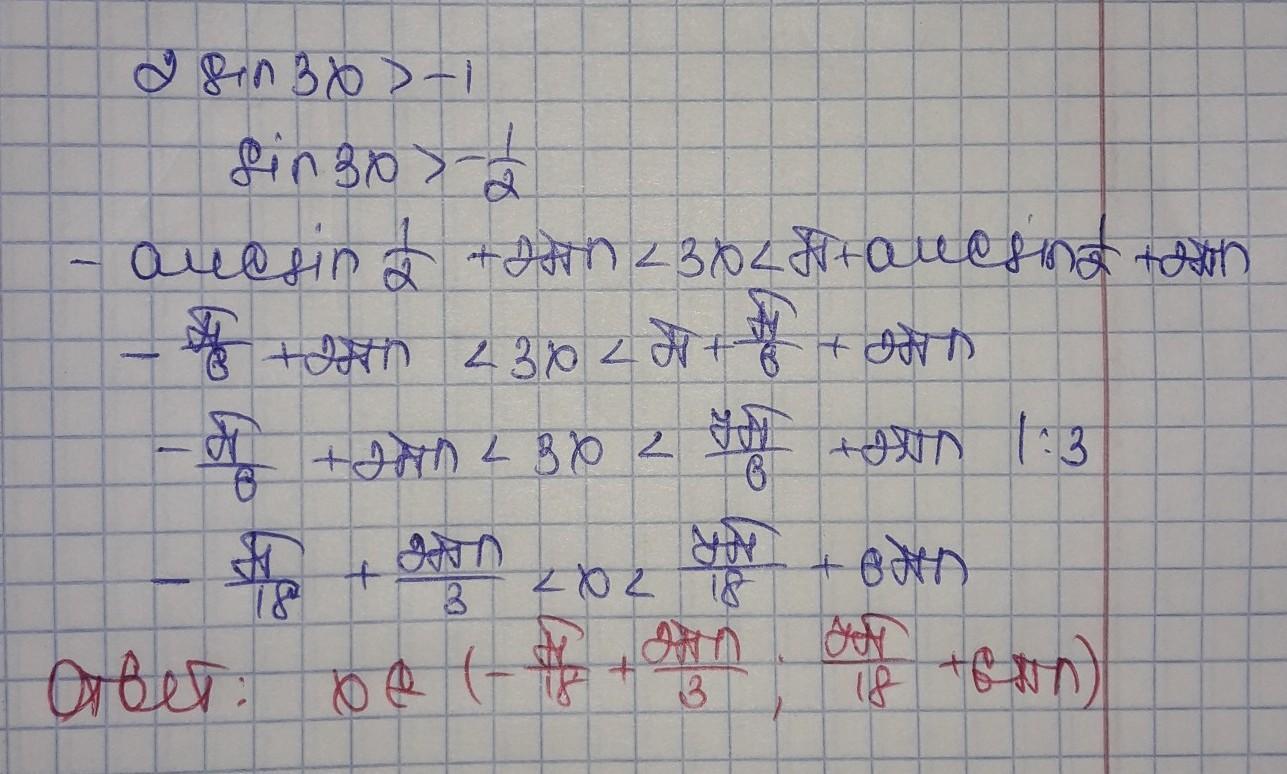 2 sin 3x > -1
sin 3x > -1/2
- arcsin 1/2 + 2πn < 3x < π + arcsin 1/2 + 2πn
- π/6 + 2πn < 3x < π + π/6 + 2πn
- π/6 + 2πn < 3x < 7π/6 + 2πn | : 3
- π/18 + 2πn/3 < x < 7π/18 + 6πn
Ответ: x ∈ (- π/18 + 2πn/3 ; 7π/18 + 6πn)